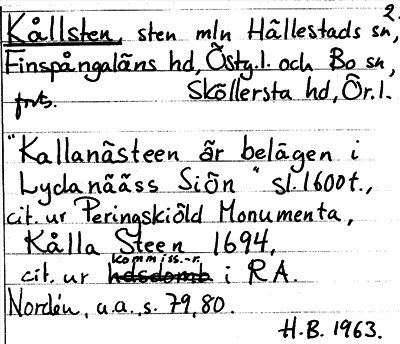 2.
Kållsten, sten mln Hällestads sn,
Finspångaläns hd, Östg.l. och Bo sn,
forts. Sköllersta hd, Ör.l.
"Kallanästeen är belägen i
Lydanäåss Siön" sl. 1600t.,
cit. ur Peringskiöld Monumenta,
Kålla Steen 1694,
kommiss.-r.
cit. ur hdsdomb i RA.
Nordén, a.a., s. 79, 80.
H.B. 1963.